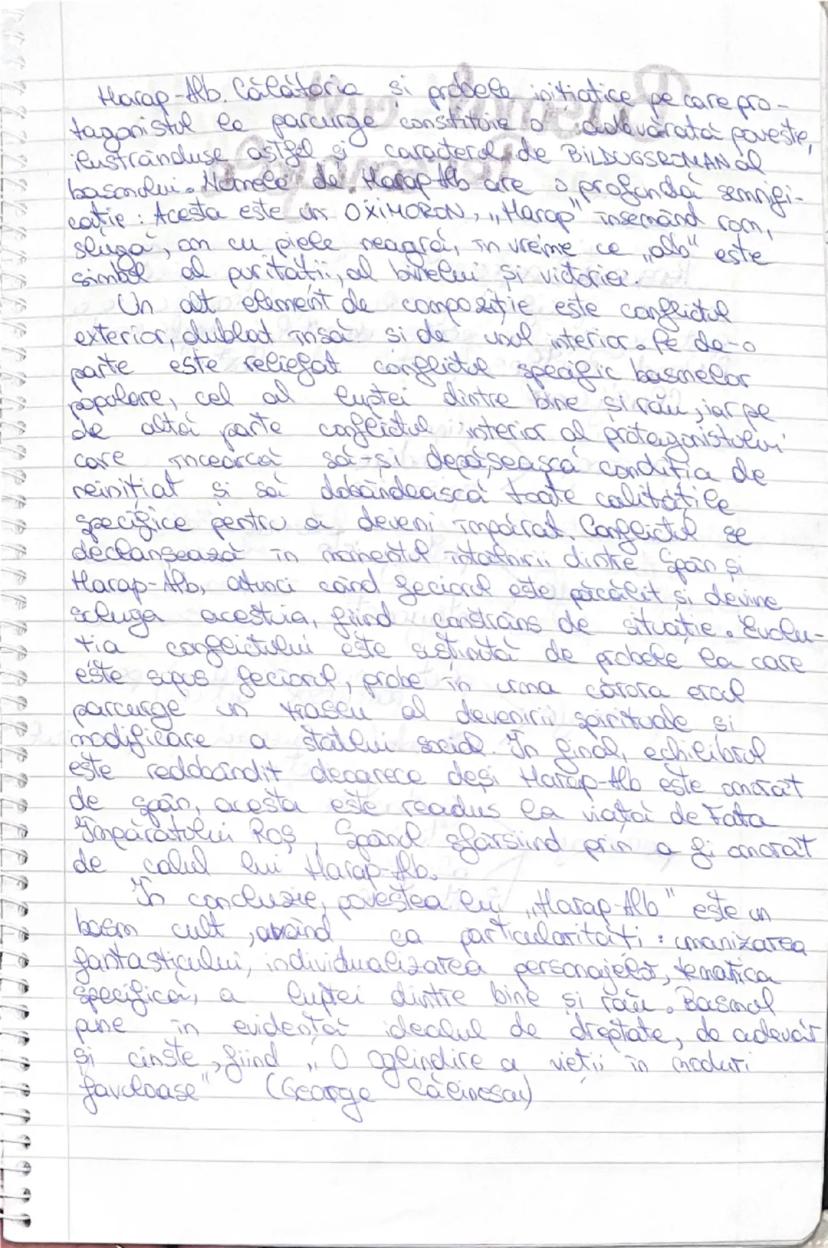 Harap-Alb. Călătoria si probele inițiatice pe care pro-
tagonistul le parcurge constituie o adevărată poveste,
ilustrânduse astfel si caracterul de BILDUGSROMAN al
basmului. Numele de Harap Alb are o profundă semnifi-
cație: Acesta este un OXIMORON, „Harap" însemând rom,
slugă, om cu piele neagră, în vreime ce „alb" este
simbol al purității, al binelui și victoriei.
Un alt element de compoziție este conflictul
exterior, dublat însă si de unul interior. Pe de-o
parte este reliefat conflictul specific basmelor
populare, cel al luptei dintre bine și rău, iar pe
de altă parte conflictul interior al protagonistului
care încearcă să-și depășească condiția de
neinițiat și să dobândească toate calitățile
specifice pentru a deveni împărat. Conflictul se
declanșează în momentul întâlnirii dintre Spân și
Harap-Alb, atunci când feciorul este păcălit si devine
sluga acestuia, fiind constrâns de situație. Evolu-
tia conflictului este susținută de probele la care
este supus feciorul, probe în urma cărora eroul
parcurge un traseu al devenirii spirituale si
modificare a statului social. În final, echilibrul
este redobândit deoarece deși Harap-Alb este omorât
de spân, acesta este readus la viață de Fata
Împăratului Roș, Spânul sfârsiind prin a fi omorât
de calul lui Harap-Alb.
În concluzie, povestea lui „Harap-Alb" este un
basm cult, având ca particularități: umanizarea
fantasticului, individualizarea personajelor, tematica
specifică, a luptei dintre bine și rău. Basmul
pune în evidență idealul de dreptate, de adevăr
și cinste, fiind „O oglindire a vieții în moduri
favuloase" (George Călinescu)